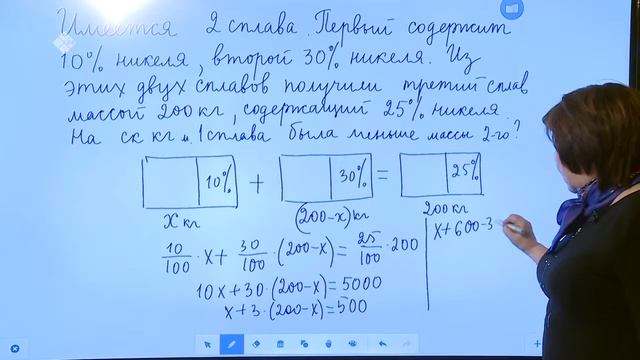 Имеется 2 сплава. Первый содержит
10% никеля, второй 30% никеля. Из
этих двух сплавов получили третий сплав
массой 200 кг, содержащий 25% никеля.
На ск кг м. 1 сплава была меньше массы 2-го?
10% + 30% = 25%
x кг (200-x) кг 200 кг
10/100 · x + 30/100 · (200-x) = 25/100 · 200
10x + 30·(200-x) = 5000
x + 3·(200-x) = 500
x + 600 - 3